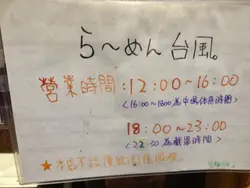 ら〜めん 台風。
營業時間:12:00~16:00
<16:00~18:00為中場休息時間>
18:00~23:00
<22:30為截單時間>
★本店不設